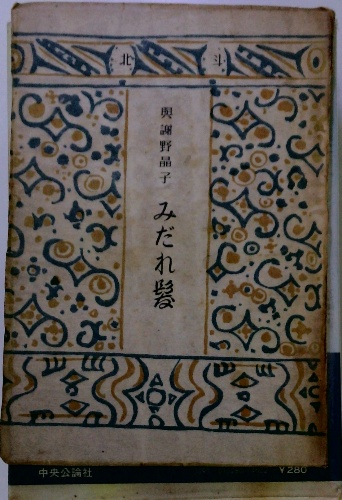 北斗
與謝野晶子
みだれ髪
中央公論社
¥280